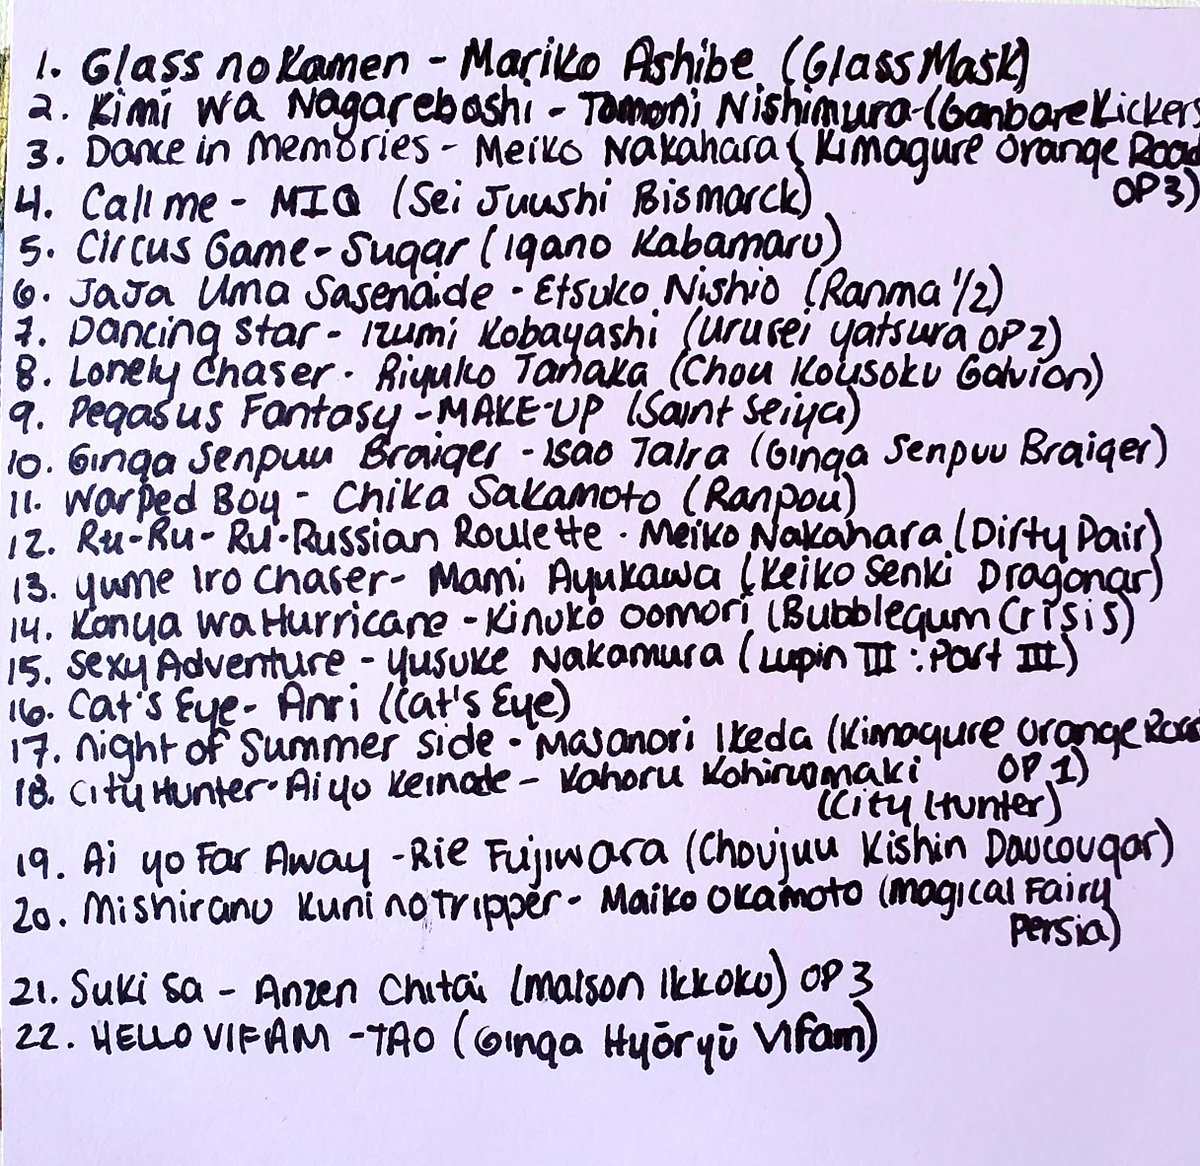 1. Glass no Kamen - Mariko Ashibe (Glass Mask)
2. Kimi wa Nagareboshi - Tomomi Nishimura - (Ganbare Kickers
3. Dance in memories - Meiko Nakahara (Kimagure Orange Road
OP3)
4. Call me - MIQ (Sei Juushi Bismarck)
5. Circus Game - Sugar (Igano Kabamaru)
6. JaJa Uma Sasenaide - Etsuko Nishio (Ranma 1/2)
7. Dancing Star - Izumi Kobayashi (Urusei Yatsura OP2)
8. Lonely Chaser - Riyuko Tanaka (Chou Kousoku Galvion)
9. Pegasus Fantasy - MAKE-UP (Saint Seiya)
10. Ginga Senpuu Braiger - Isao Taira (Ginga Senpuu Braiger)
11. Warped Boy - Chika Sakamoto (Ranpou)
12. Ru-Ru-Ru-Russian Roulette - Meiko Nakahara (Dirty Pair)
13. Yume Iro Chaser - Mami Ayukawa (Keiko Senki Dragonar)
14. Konya wa Hurricane - Kinuko Oomori (Bubblegum Crisis)
15. Sexy Adventure - Yusuke Nakamura (Lupin III : Part III)
16. Cat's Eye - Anri (Cat's Eye)
17. Night of Summer side - Masanori Ikeda (Kimagure Orange Road
OP 1)
18. City Hunter - Ai yo Keinade - Kahoru Kohiruimaki
(City Hunter)
19. Ai yo Far Away - Rie Fujiwara (Choujuu Kishin Dancougar)
20. Mishiranu Kuni no Tripper - Maiko Okamoto (Magical Fairy
Persia)
21. Suki Sa - Anzen Chitai (Maison Ikkoku) OP 3
22. HELLO VIFAM - TAO (Ginga Hyōryū Vifam)